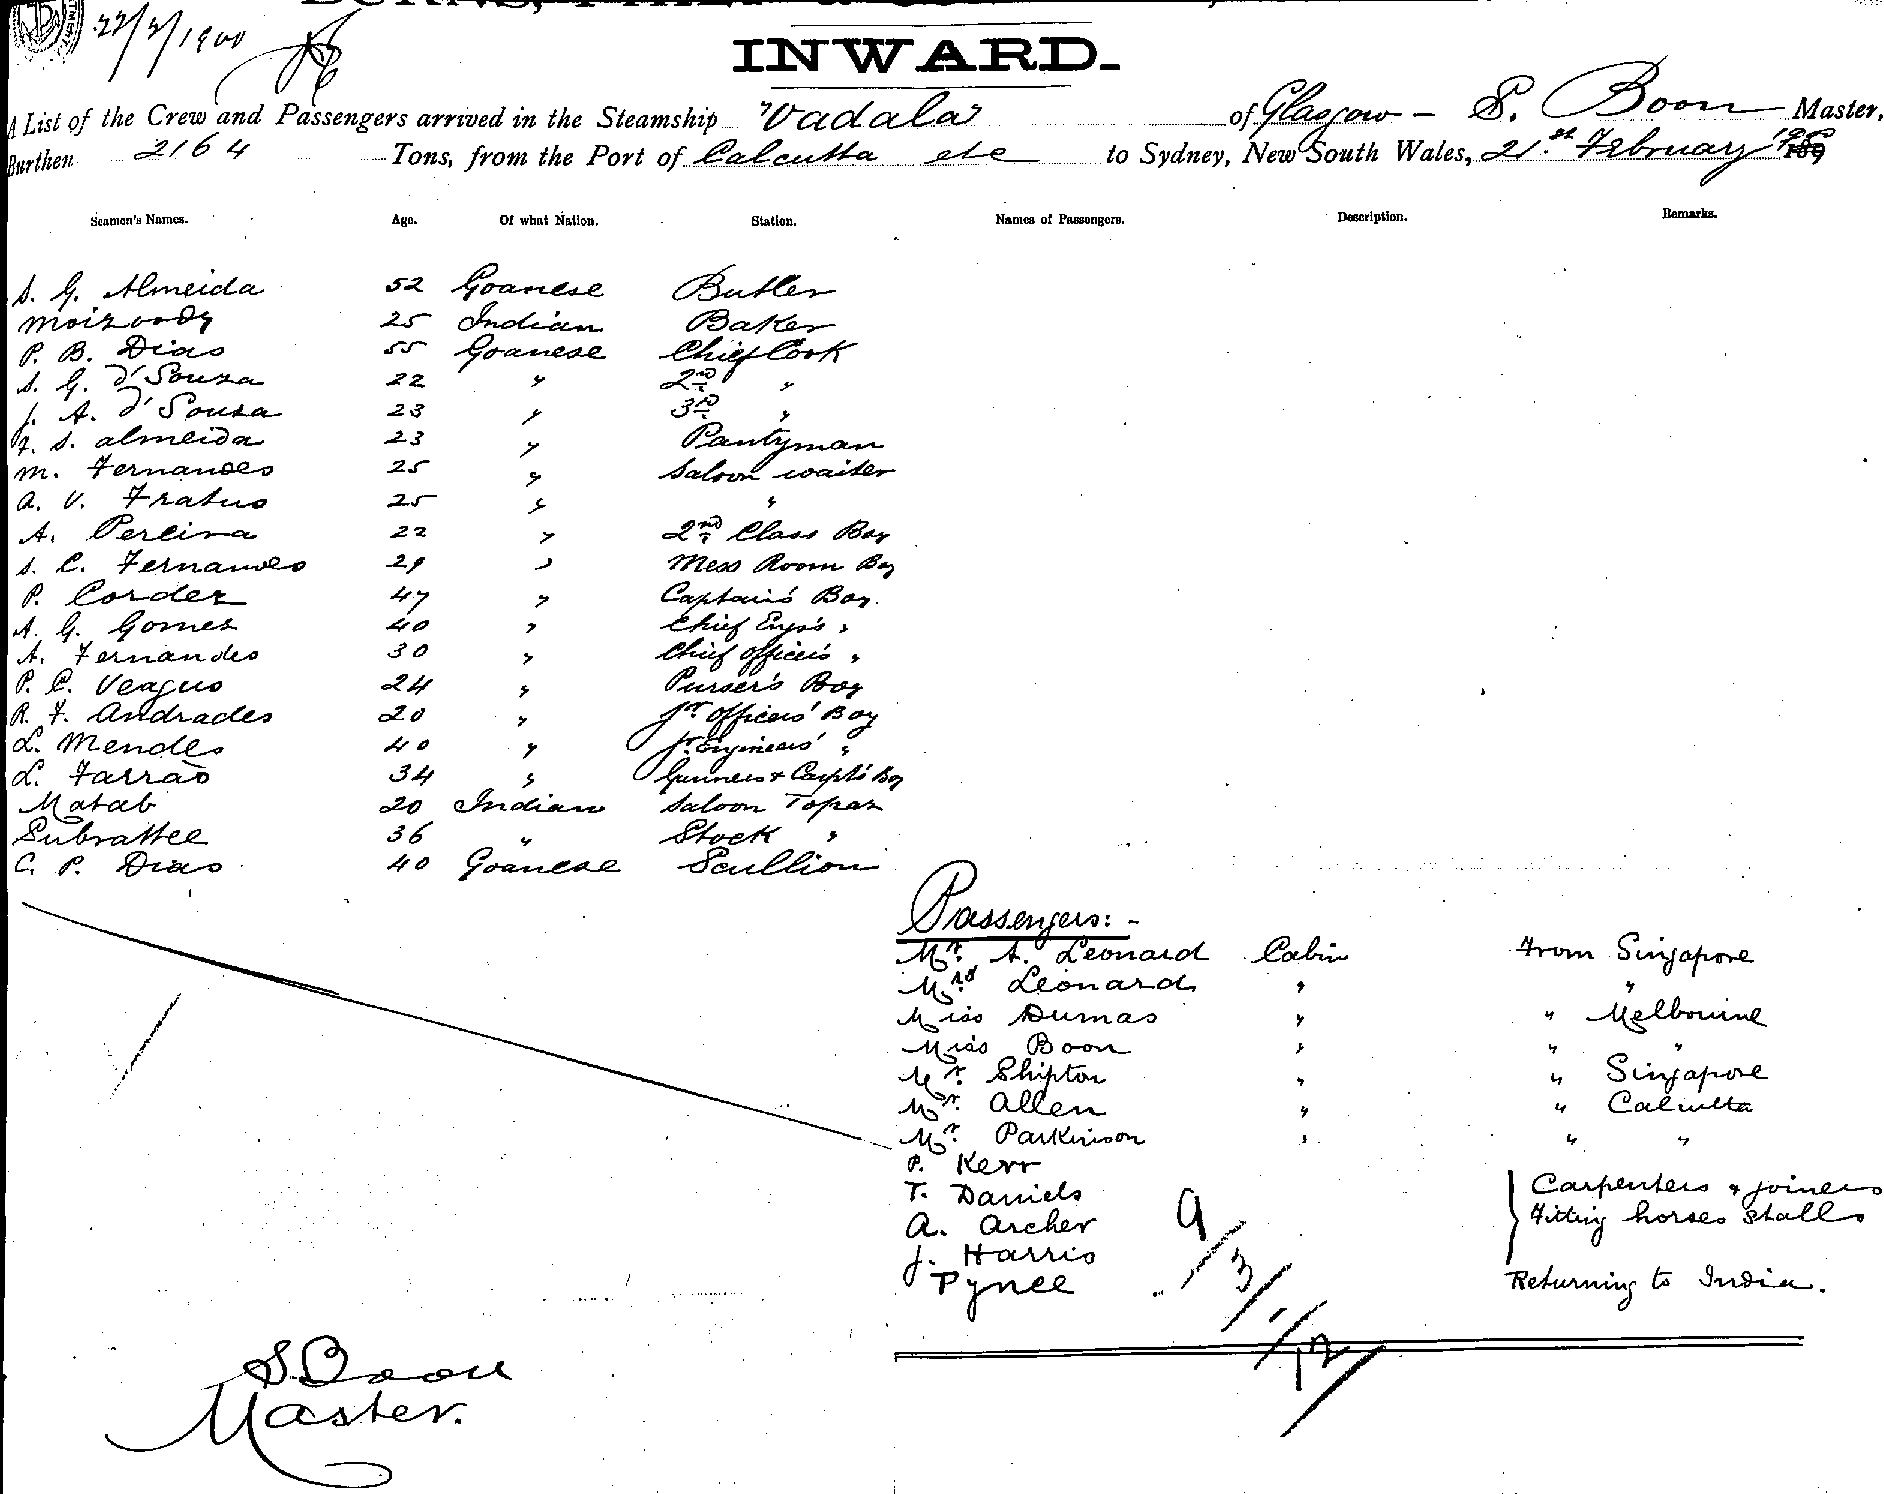 22/2/1900
INWARD.
A List of the Crew and Passengers arrived in the Steamship Vadala of Glasgow - S. Boon Master,
Burthen 2164 Tons, from the Port of Calcutta etc to Sydney, New South Wales, 21st February 1900
Seamen's Names. Age. Of what Nation. Station. Names of Passengers. Description. Remarks.
S. G. Almeida 52 Goanese Butler
Moizoody 25 Indian Baker
P. B. Dias 55 Goanese Chief Cook
S. G. d'Souza 22 " 2nd "
J. A. d'Sousa 23 " 3rd "
S. Almeida 23 " Pantryman
M. Fernandes 25 " Saloon waiter
A. V. Fratus 25 " "
A. Pereira 22 " 2nd Class Boy
S. C. Fernandes 29 " Mess Room Boy
P. Cordez 47 " Captain's Boy.
A. G. Gomez 40 " Chief Engr's "
A. Fernandes 30 " Chief officer's "
P. C. Veagus 24 " Purser's Boy
R. F. Andrades 20 " Jr officers' Boy
L. Mendes 40 " Jr. Engineers' "
L. Farrao 34 " Gunners + Carpt's Boy
Matab 20 Indian Saloon Topaz
Subrattee 36 " Stock "
C. P. Dias 40 Goanese Scullion
Passengers: -
Mr. A. Leonard Cabin From Singapore
Mrs Leonard " "
Miss Dumas " " Melbourine
Miss Boon " " "
Mr. Shipton " " Singapore
Mr. Allen " " Calcutta
Mr. Parkinson " " "
P. Kerr
T. Daniels Carpenters & joiners
A. Archer Fitting horses stalls
J. Harris
Pynee Returning to India.
9/3/1/12/
S. Boon
Master.